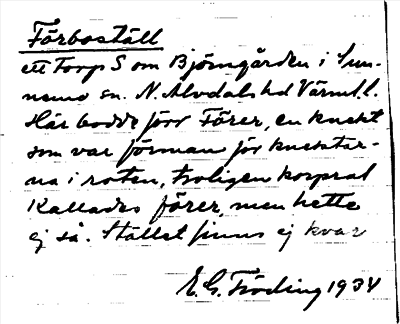 Förboställ
ett torp S om Björngården i Sun-
nemo sn. N. Älvdals hd Värml. l.
Här bodde förr Förer, en knekt
som var förman för knektar-
na i roten, troligen korpral
Kallades förer, men hette
ej så. Stället finns ej kvar
E. G. Fröding 1934